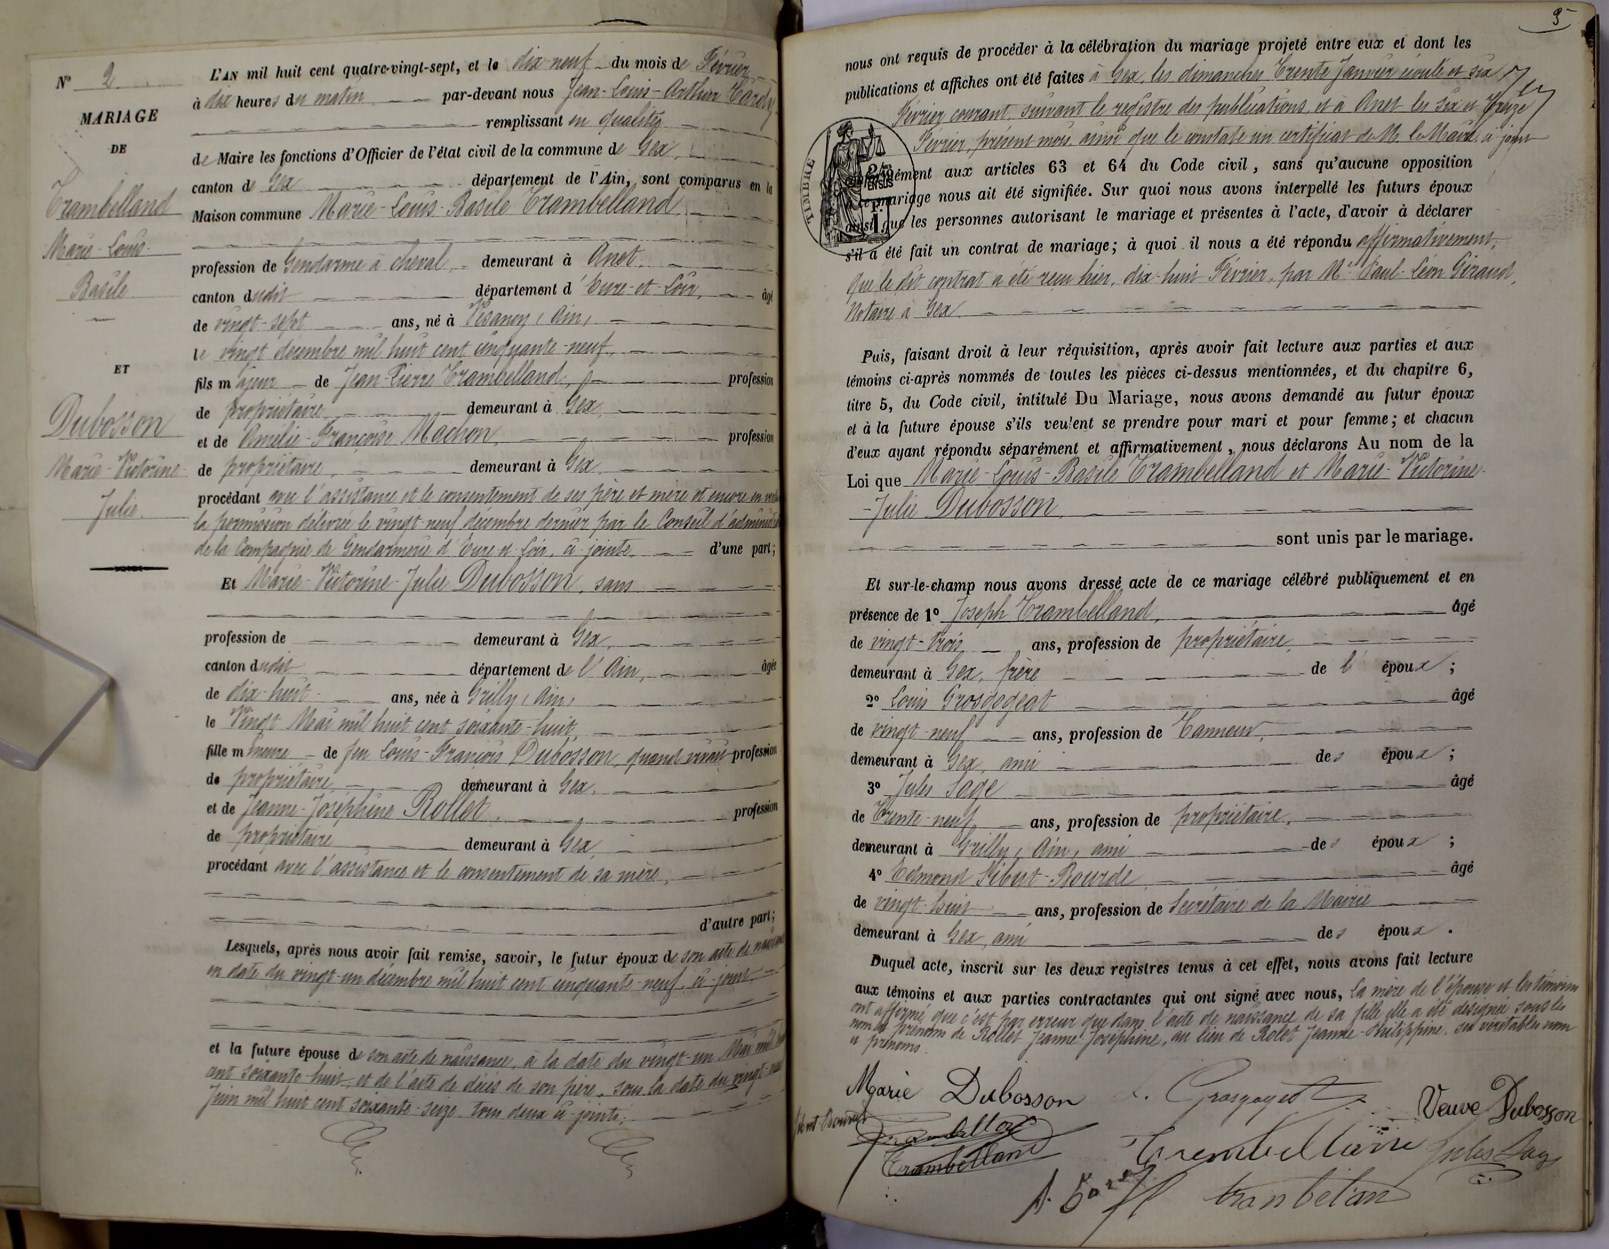 N° 2
MARIAGE
DE
Trambelland
Marie-Louis-
Basile
ET
Dubosson
Marie-Victorine-
Julie.
L'AN mil huit cent quatre-vingt-sept, et le dix neuf du mois de Février
à dix heures du matin par-devant nous Jean-Louis-Arthur
remplissant en qualité
de Maire les fonctions d'Officier de l'état civil de la commune de Gex,
canton de Gex département de l'Ain, sont comparus en la
Maison commune Marie-Louis-Basile Trambelland
profession de Gendarme à cheval, demeurant à Anet,
canton dudit département d'Eure-et-Loir, âgé
de vingt-sept ans, né à Vesancy, Ain,
le vingt décembre mil huit cent cinquante-neuf,
fils majeur de Jean-Pierre Trambelland, profession
de propriétaire demeurant à Gex,
et de Amélie-Françoise Machon, profession
de propriétaire, demeurant à Gex
procédant avec l'assistance et le consentement de ses père et mère et encore en
la permission délivrée le vingt-neuf décembre dernier par le Conseil
de la Compagnie de Gendarmerie d'Eure et Loir, ci-jointe. d'une part;
Et Marie-Victorine-Julie Dubosson, sans
profession de demeurant à Gex,
canton dudit département de l'Ain, âgée
de dix-huit ans, née à Grilly, Ain,
le Vingt Mai mil huit cent soixante-huit,
fille mineure de feu Louis-François Dubosson, quand vivait profession
de propriétaire, demeurant à Gex,
et de Jeanne-Joséphine Rollet, profession
de propriétaire demeurant à Gex,
procédant avec l'assistance et le consentement de sa mère,
d'autre part;
Lesquels, après nous avoir fait remise, savoir, le futur époux de son acte de
en date du vingt-un décembre mil huit cent cinquante-neuf, ci-joint
et la future épouse de son acte de naissance, à la date du vingt-un Mai mil
cent soixante-huit, et de l'acte de décès de son père, sous la date du
Juin mil huit cent soixante-seize, tous deux ci-joints;
nous ont requis de procéder à la célébration du mariage projeté entre eux et dont les
publications et affiches ont été faites à Gex, les dimanches Trente Janvier écoulé et six
Février courant, suivant le registre des publications, et à Anet les six et treize
Février, présent mois, ainsi que le constate un certificat de M. le Maire, ci-joint
aux articles 63 et 64 du Code civil, sans qu'aucune opposition
mariage nous ait été signifiée. Sur quoi nous avons interpellé les futurs époux
ainsi que les personnes autorisant le mariage et présentes à l'acte, d'avoir à déclarer
s'il a été fait un contrat de mariage; à quoi il nous a été répondu affirmativement,
que le dit contrat a été reçu hier, dix-huit Février, par Me Paul-Léon Giraud,
Notaire à Gex
TIMBRE
Puis, faisant droit à leur réquisition, après avoir fait lecture aux parties et aux
témoins ci-après nommés de toutes les pièces ci-dessus mentionnées, et du chapitre 6,
titre 5, du Code civil, intitulé Du Mariage, nous avons demandé au futur époux
et à la future épouse s'ils veulent se prendre pour mari et pour femme; et chacun
d'eux ayant répondu séparément et affirmativement, nous déclarons Au nom de la
Loi que Marie-Louis-Basile Trambelland et Marie-Victorine-
-Julie Dubosson
sont unis par le mariage.
Et sur-le-champ nous avons dressé acte de ce mariage célébré publiquement et en
présence de 1° Joseph Trambelland, âgé
de vingt-trois ans, profession de propriétaire,
demeurant à Gex, frère de l'époux;
2° Louis Grosgogeat âgé
de vingt-neuf ans, profession de Tanneur,
demeurant à Gex, ami des époux;
3° Jules Sage âgé
de Trente-neuf ans, profession de propriétaire,
demeurant à Grilly, Ain, ami des époux;
4° Edmond Gibert-Bourde âgé
de vingt-huit ans, profession de Secrétaire de la Mairie
demeurant à Gex, ami des époux.
Duquel acte, inscrit sur les deux registres tenus à cet effet, nous avons fait lecture
aux témoins et aux parties contractantes qui ont signé avec nous, la mère de l'épouse et les témoins
ont affirmé que c'est par erreur que dans l'acte de naissance de sa fille elle a été désignée sous les
nom et prénoms de Rollet Jeanne Joséphine, au lieu de Rolet Jeanne-Philippine, ses véritables nom
et prénoms.
Marie Dubosson
Veuve Dubosson
Trambelland
Jules Sage